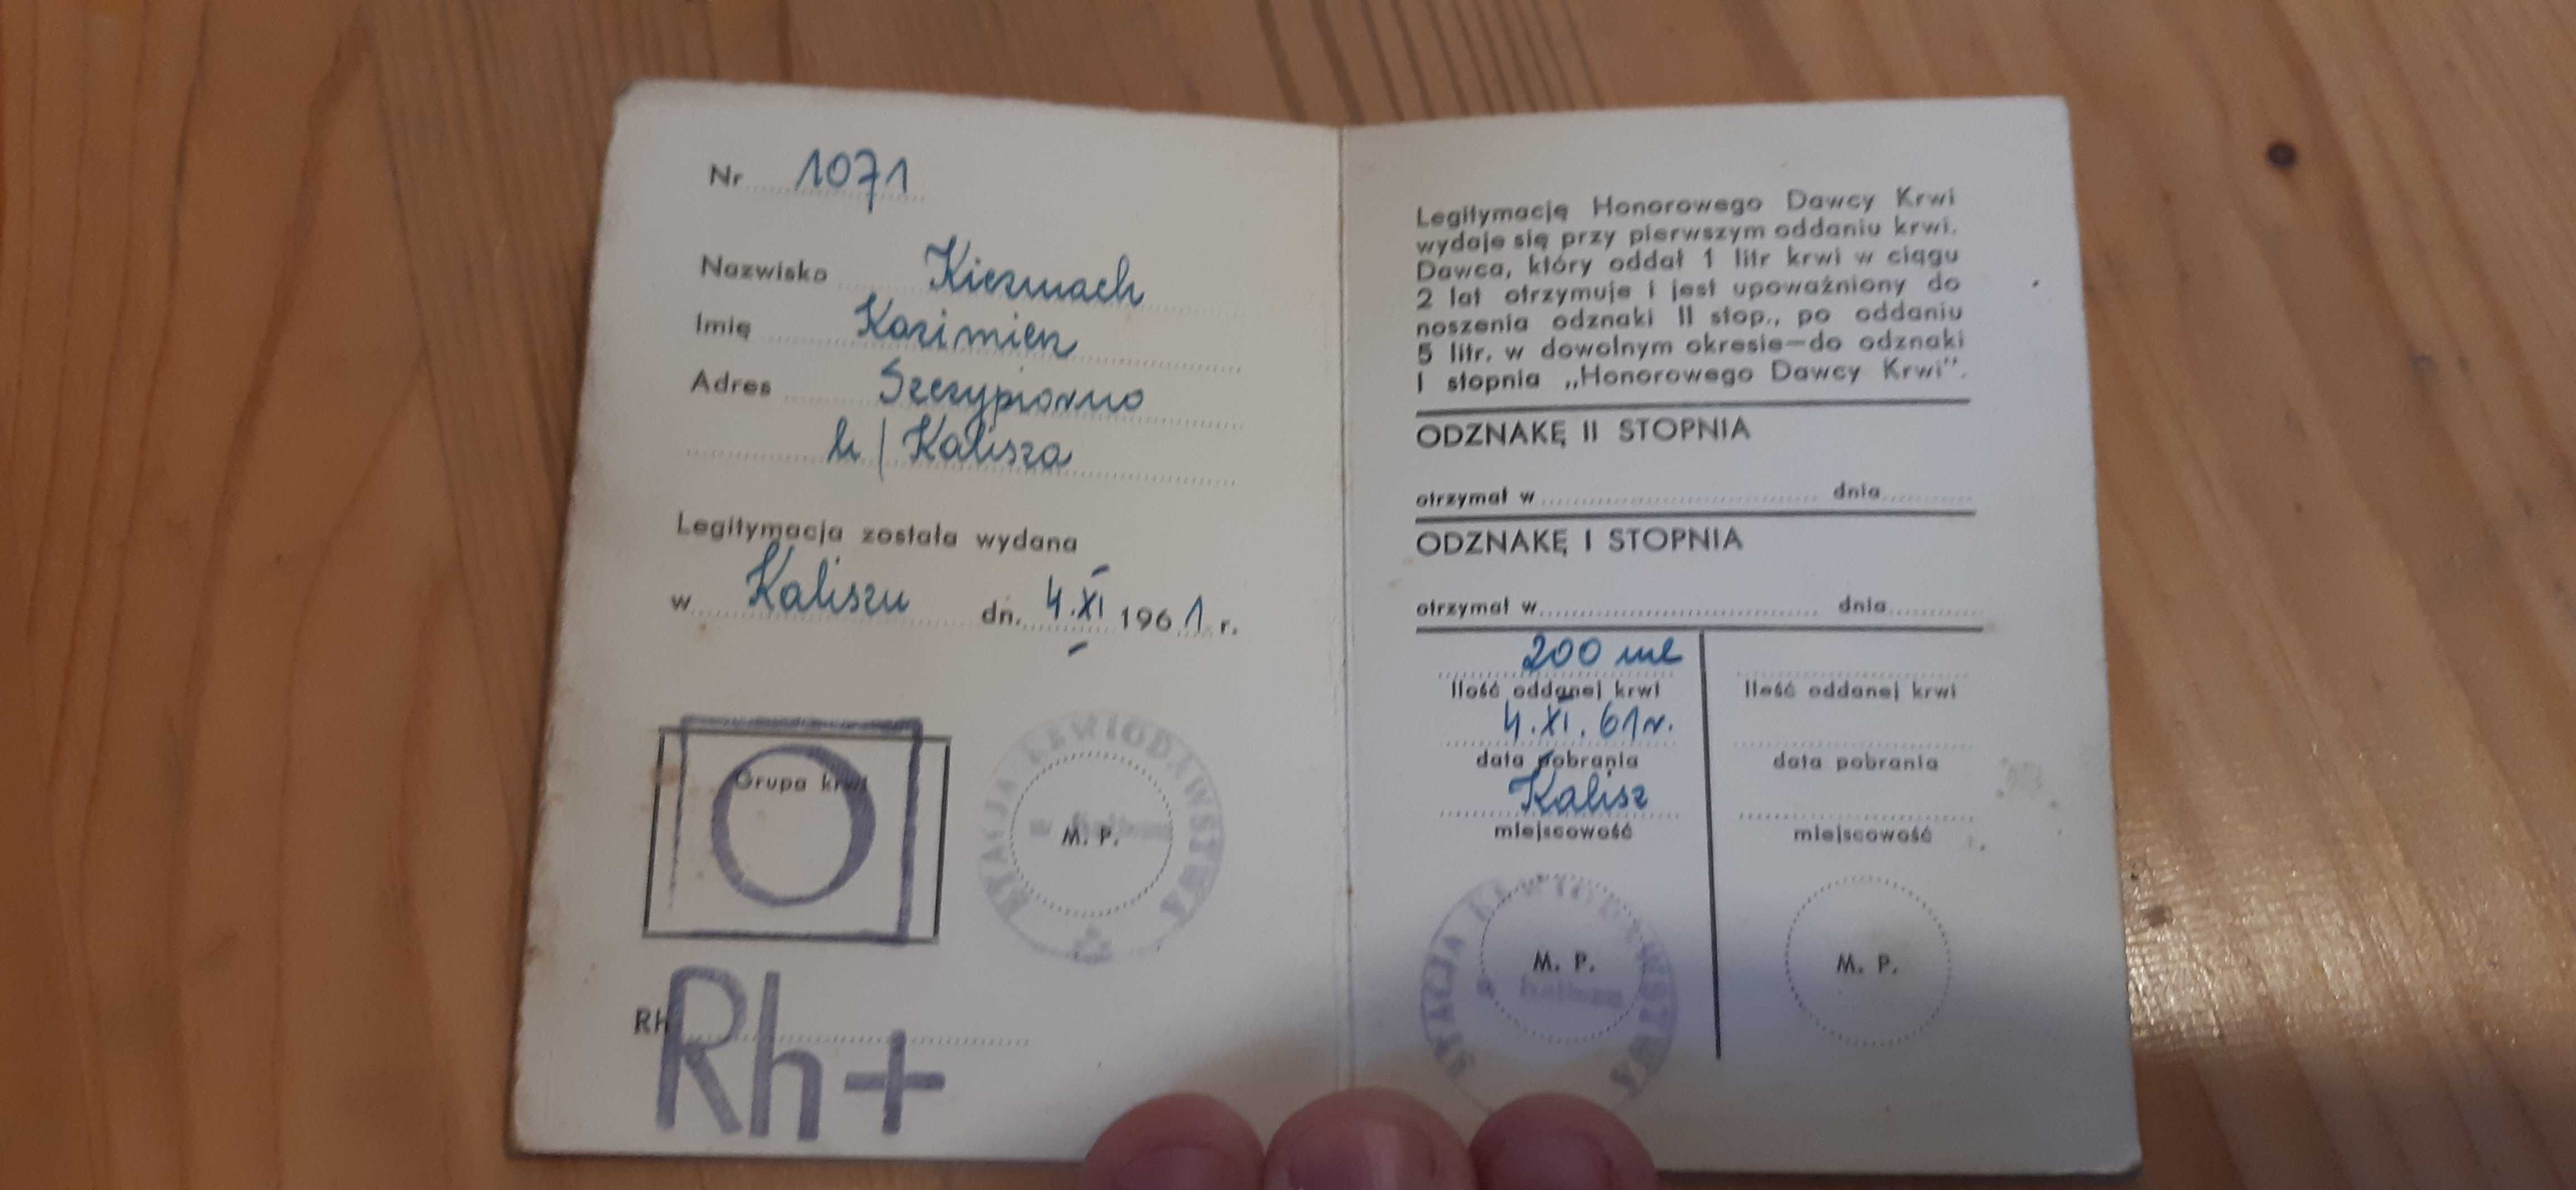 Nr 1071
Nazwisko Kiermach
Imię Kazimierz
Adres Szczypiorno
k/Kalisza
Legitymacja została wydana
w Kaliszu dn. 4.XI 1961 r.
Grupa krwi
O
STACJA KRWIODAWSTWA
M. P.
Rh
Rh+
Legitymację Honorowego Dawcy Krwi
wydaje się przy pierwszym oddaniu krwi.
Dawca, który oddał 1 litr krwi w ciągu
2 lat otrzymuje i jest upoważniony do
noszenia odznaki II stop., po oddaniu
5 litr. w dowolnym okresie—do odznaki
I stopnia „Honorowego Dawcy Krwi”.
ODZNAKĘ II STOPNIA
otrzymał w dnia
ODZNAKĘ I STOPNIA
otrzymał w dnia
200 ml
Ilość oddanej krwi
4.XI.61r.
data pobrania
Kalisz
miejscowość
STACJA KRWIODAWSTWA
M. P.
Ilość oddanej krwi
data pobrania
miejscowość
M. P.